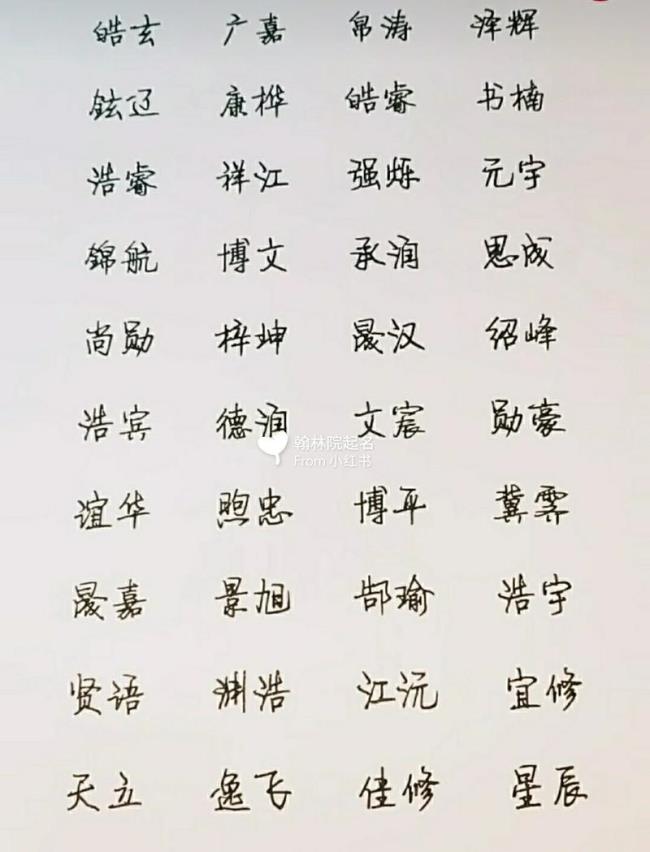 皓玄 广嘉 帛涛 泽辉
铉辽 康桦 皓睿 书楠
浩睿 祥江 强烁 元宇
锦航 博文 承润 思成
尚勋 梓坤 晟汉 绍峰
浩宾 德润 文宸 勋豪
翰林院起名
From 小红书
谊华 煦忠 博平 冀霁
晟嘉 景旭 郜瑜 浩宇
贤语 渊浩 江沅 宜修
天立 逸飞 佳修 星辰